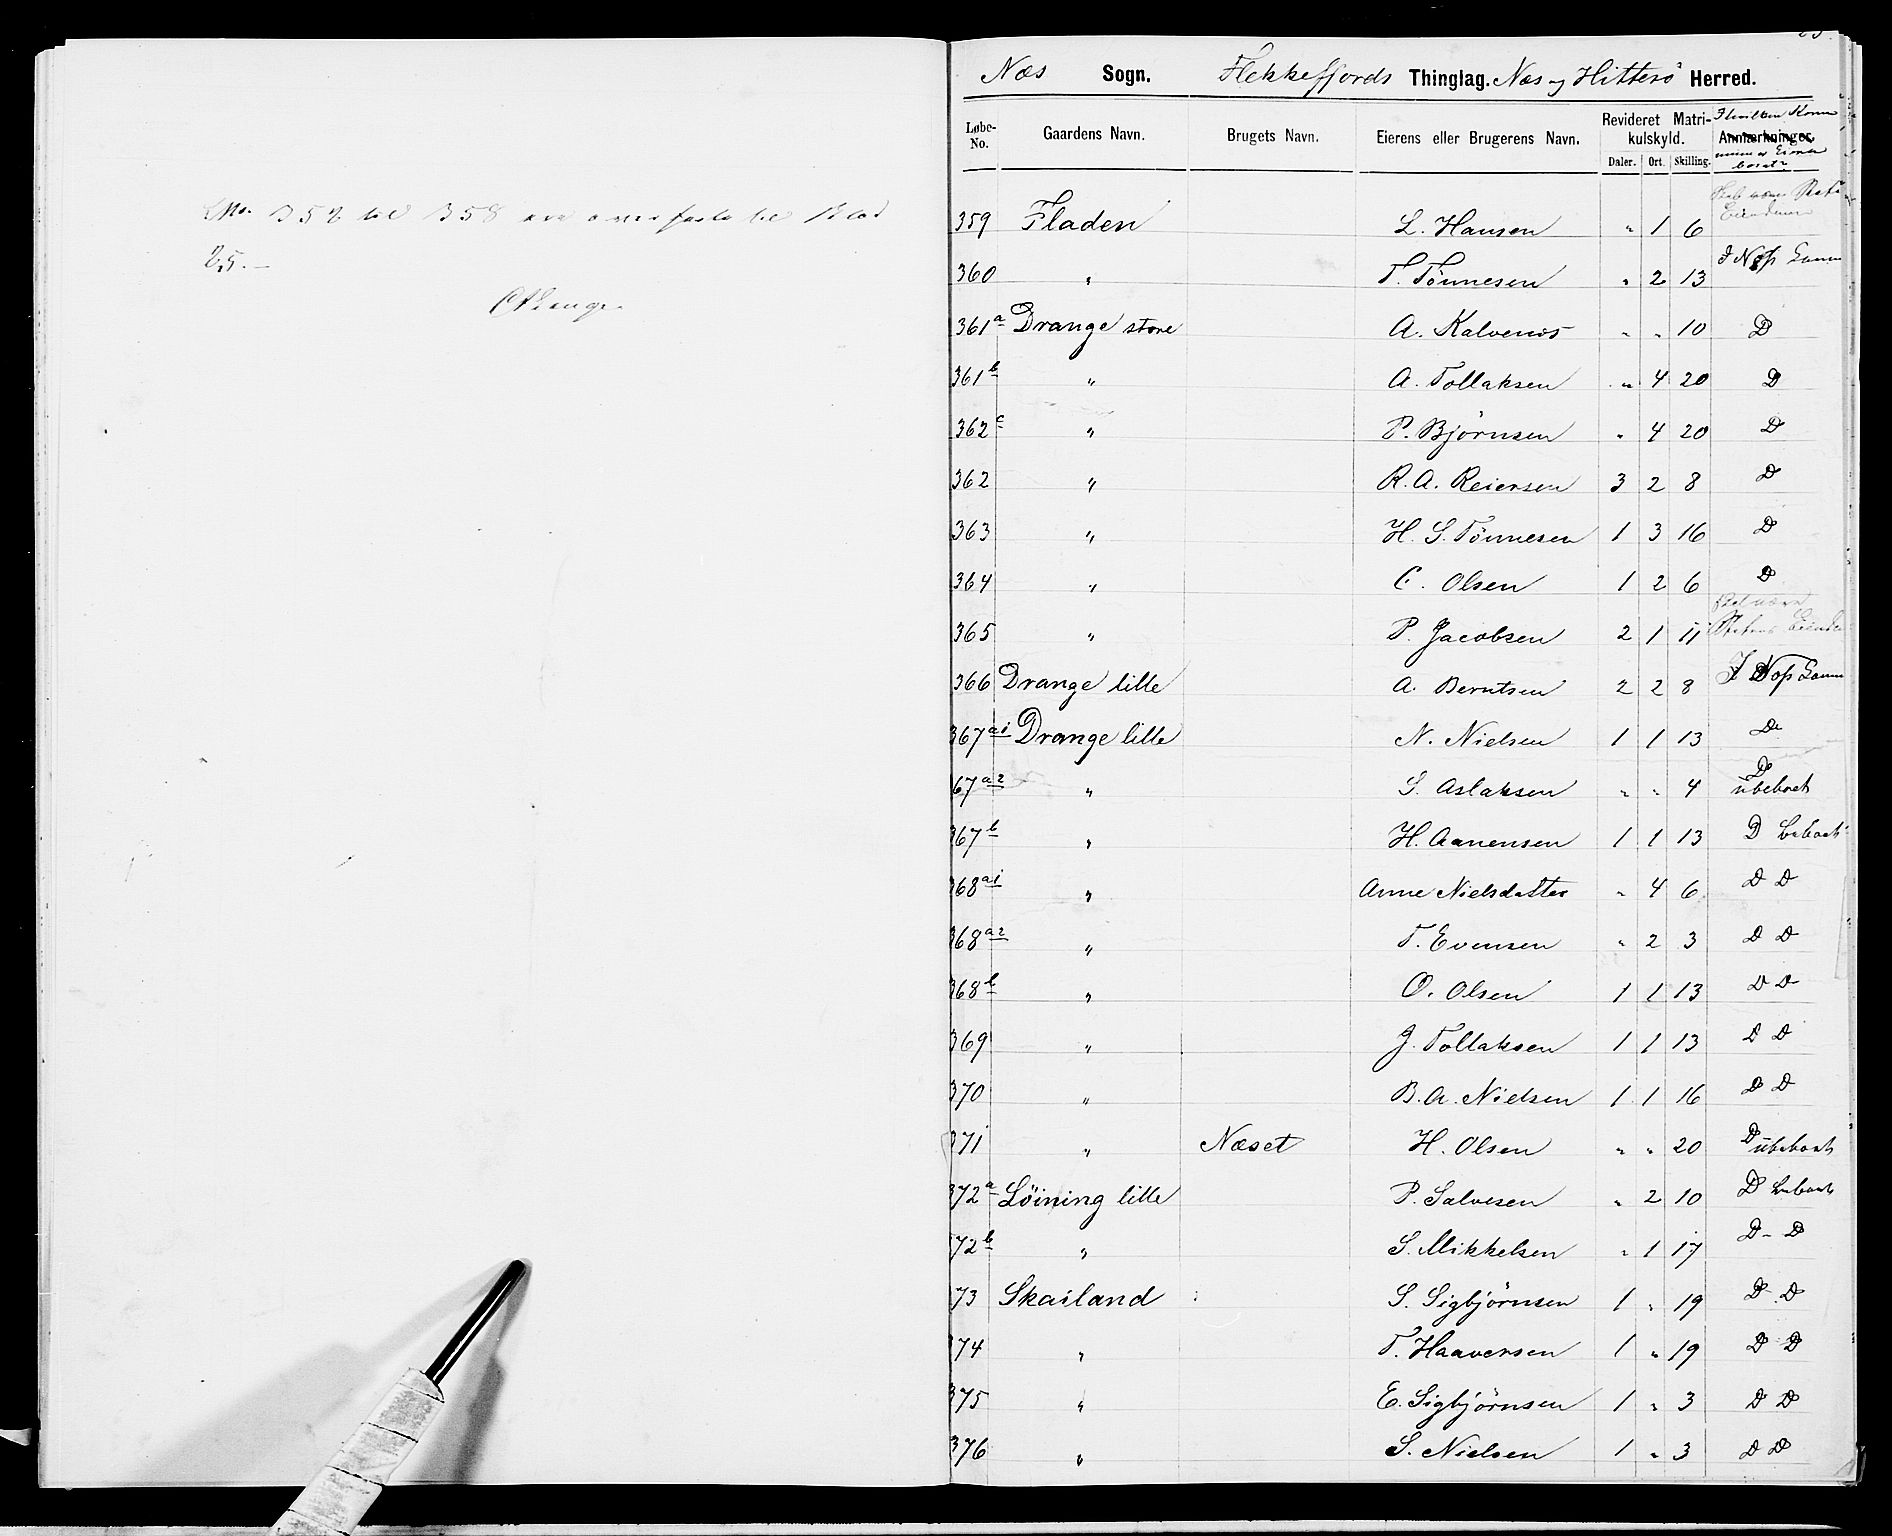 No. 352 til 358 til Blad
25.—
Næs Sogn. Flekkefjords Thinglag. Næs og Hitterö Herred.
Løbe-No. Gaardens Navn. Brugets Navn. Eierens eller Brugerens Navn. Revideret Matrikulskyld. Daler. Ort. Skilling. Anmærkninger.
359 Fladen L. Hansen " 1 6
360 " T. Tönnesen " 2 13
361a Drange store A. Kalvenes " " 10 D
361b " A. Tollaksen " 4 20 D
362c " P. Björnsen " 4 20 D
362 " R. A. Reiersen 3 2 8 D
363 " H. S. Tönnesen 1 3 16 D
364 " C. Olsen 1 2 6 D
365 " P. Jacobsen 2 1 11
366 Drange lille A. Berntsen 2 2 8
367a1 Drange lille N. Nielsen 1 1 13 Do
67a2 " S. Aslaksen " " 4 Do ubeboet
367b " H. Aanensen 1 1 13 D beboet
368a1 " Anne Nielsdatter " 4 6 D D
368a2 " T. Evensen " 2 3 D D
368b " O. Olsen 1 1 13 D D
369 " J. Tollaksen 1 1 13 D D
370 " B. A. Nielsen 1 1 16 D D
371 " Næset H. Olsen " " 20 D ubeboet
372a Löining lille P. Salvesen " 2 10 D beboet
72b " S. Mikkelsen " 1 17 D - D
73 Skailand S. Sigbjörnsen 1 " 19 D D
74 " T. Haaversen 1 " 19 D D
375 " E. Sigbjörnsen 1 " 3 D D
376 " S. Nielsen 1 " 3 D D